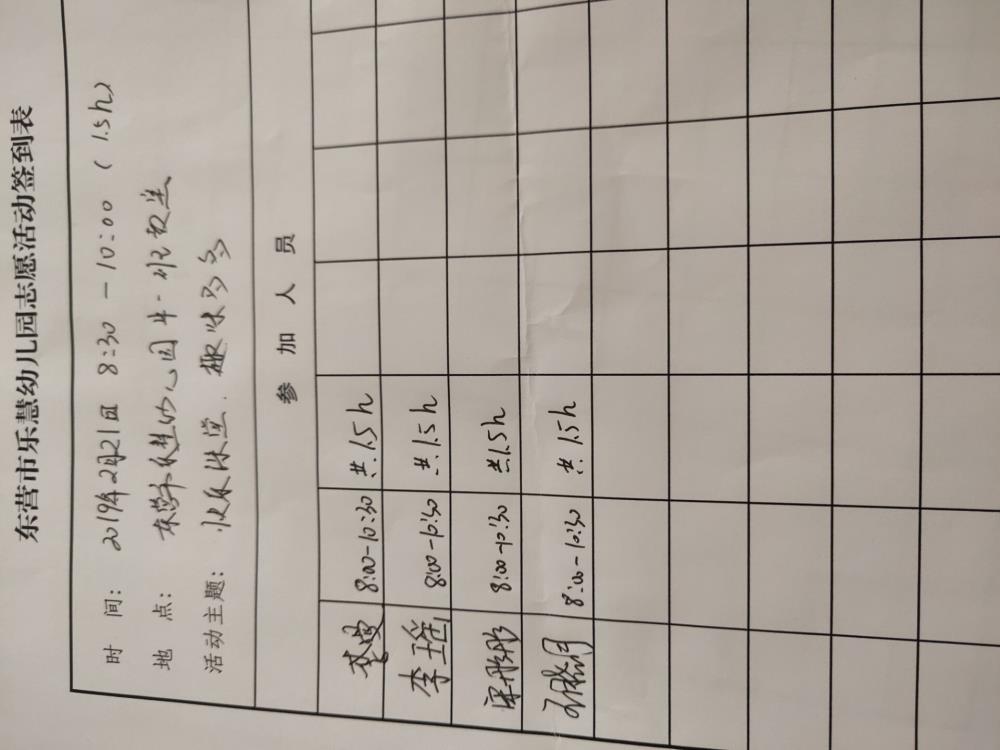 东营市乐慧幼儿园志愿活动签到表
时 间: 2019年2月21日 8:30-10:00 (1.5h)
地 点: 东营市乐慧幼儿园中一班教室
活动主题: 快乐课堂.趣味多多
参 加 人 员
8:00-10:30 共1.5h
李瑶 8:00-10:30 共1.5h
宋彤彤 8:00-10:30 共1.5h
8:00-10:30 共1.5h